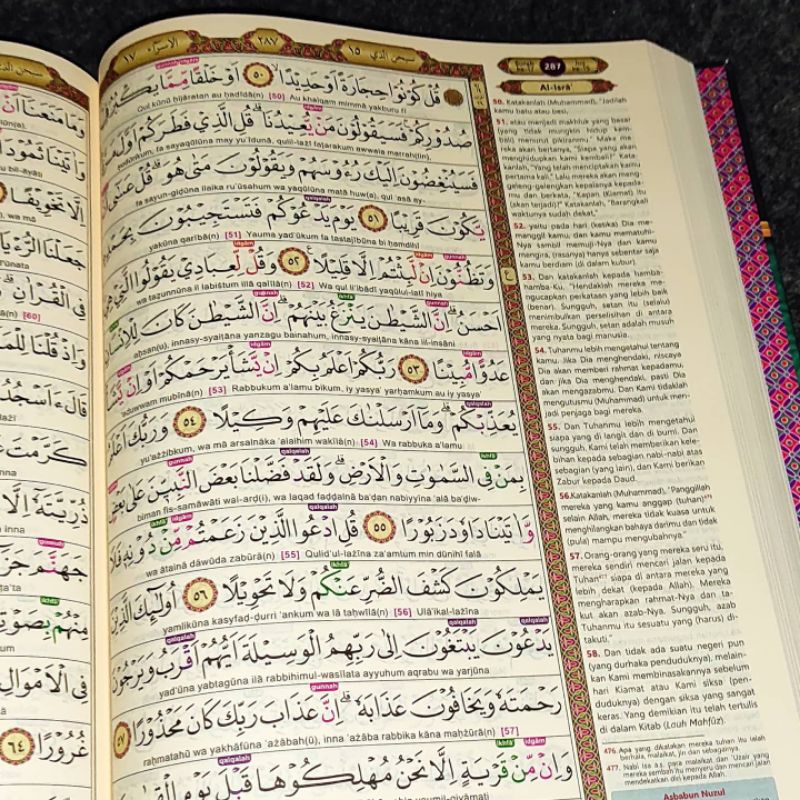 ١٧ الاسراء
٢٨٧
سبحن الذي ١٥
قُلْ كُوْنُوْا حِجَارَةً اَوْ حَدِيْدًا ۙ ٥٠ اَوْ خَلْقًا مِّمَّا يَكْبُرُ
Qul kūnū ḥijāratan au ḥadīdā(n) [50] Au khalqam mimmā yakburu fī
صُدُوْرِكُمْ ۚ فَسَيَقُوْلُوْنَ مَنْ يُّعِيْدُنَا ۗ قُلِ الَّذِيْ فَطَرَكُمْ اَوَّلَ
ṣudūrikum, fa sayaqūlūna may yu‘īdunā, qulil-lażī faṭarakum awwala marrah(tin),
فَسَيُنْغِضُوْنَ اِلَيْكَ رُءُوْسَهُمْ وَيَقُوْلُوْنَ مَتٰى هُوَ ۗ قُلْ عَسٰٓى
fa sayungiḍūna ilaika ru'ūsahum wa yaqūlūna matā huw(a), qul ‘asā ay-
يَّكُوْنَ قَرِيْبًا ٥١ يَوْمَ يَدْعُوْكُمْ فَتَسْتَجِيْبُوْنَ
yakūna qarībā(n) [51] Yauma yad‘ūkum fa tastajībūna bi ḥamdihī
وَتَظُنُّوْنَ اِنْ لَّبِثْتُمْ اِلَّا قَلِيْلًا ٥٢ وَقُلْ لِّعِبَادِيْ يَقُوْلُوا الَّتِيْ هِيَ
wa taẓunnūna il labiṡtum illā qalīlā(n) [52] Wa qul li‘ibādī yaqūlul-latī hiya
اَحْسَنُ ۗ اِنَّ الشَّيْطٰنَ يَنْزَغُ بَيْنَهُمْ ۗ اِنَّ الشَّيْطٰنَ كَانَ لِلْاِنْسَانِ
aḥsan(u), innasy-syaiṭāna yanzagu bainahum, innasy-syaiṭāna kāna lil-insāni
عَدُوًّا مُّبِيْنًا ٥٣ رَبُّكُمْ اَعْلَمُ بِكُمْ ۗ اِنْ يَّشَأْ يَرْحَمْكُمْ اَوْ اِنْ يَّشَأْ
‘aduwwam mubīnā(n) [53] Rabbukum a‘lamu bikum, iy yasya' yarḥamkum au iy yasya'
يُعَذِّبْكُمْ ۗ وَمَآ اَرْسَلْنٰكَ عَلَيْهِمْ وَكِيْلًا ٥٤ وَرَبُّكَ اَعْلَمُ
yu‘ażżibkum, wa mā arsalnāka ‘alaihim wakīlā(n) [54] Wa rabbuka a‘lamu
بِمَنْ فِى السَّمٰوٰتِ وَالْاَرْضِ ۗ وَلَقَدْ فَضَّلْنَا بَعْضَ النَّبِيّٖنَ عَلٰى بَعْضٍ
biman fis-samāwāti wal-arḍ(i), wa laqad faḍḍalnā ba‘ḍan nabiyyīna ‘alā ba‘ḍiw-
وَّاٰتَيْنَا دَاوٗدَ زَبُوْرًا ٥٥ قُلِ ادْعُوا الَّذِيْنَ زَعَمْتُمْ مِّنْ دُوْنِهٖ فَلَا
wa ātainā dāwūda zabūrā(n) [55] Qulid‘ul-lażīna za‘amtum min dūnihī falā
يَمْلِكُوْنَ كَشْفَ الضُّرِّ عَنْكُمْ وَلَا تَحْوِيْلًا ٥٦ اُولٰۤىِٕكَ الَّذِيْنَ
yamlikūna kasyfaḍ-ḍurri ‘ankum wa lā taḥwīlā(n) [56] Ulā'ikal-lażīna
يَدْعُوْنَ يَبْتَغُوْنَ اِلٰى رَبِّهِمُ الْوَسِيْلَةَ اَيُّهُمْ اَقْرَبُ وَيَرْجُوْنَ
yad‘ūna yabtagūna ilā rabbihimul-wasīlata ayyuhum aqrabu wa yarjūna
رَحْمَتَهٗ وَيَخَافُوْنَ عَذَابَهٗ ۗ اِنَّ عَذَابَ رَبِّكَ كَانَ مَحْذُوْرًا ٥٧
raḥmatahū wa yakhāfūna ‘ażābah(ū), inna ‘ażāba rabbika kāna maḥżūrā(n) [57]
وَاِنْ مِّنْ قَرْيَةٍ اِلَّا نَحْنُ مُهْلِكُوْهَا قَبْلَ يَوْمِ
287
Al-Isrā'
50. Katakanlah (Muhammad), "Jadilah
kamu batu atau besi,
51. atau menjadi makhluk yang besar
(yang tidak mungkin hidup kem-
bali) menurut pikiranmu." Maka me-
reka akan bertanya, "Siapa yang akan
menghidupkan kami kembali?" Kata-
kanlah, "Yang telah menciptakan kamu
pertama kali." Lalu mereka akan meng-
geleng-gelengkan kepalanya kepada-
mu dan berkata, "Kapan (Kiamat) itu
(akan terjadi)?" Katakanlah, "Barangkali
waktunya sudah dekat,"
52. yaitu pada hari (ketika) Dia me-
manggil kamu, dan kamu mematuhi-
Nya sambil memuji-Nya dan kamu
mengira, (rasanya) hanya sebentar saja
kamu berdiam (di dalam kubur).
53. Dan katakanlah kepada hamba-
hamba-Ku, "Hendaklah mereka me-
ngucapkan perkataan yang lebih baik
(benar). Sungguh, setan itu (selalu)
menimbulkan perselisihan di antara
mereka. Sungguh, setan adalah musuh
yang nyata bagi manusia.
54. Tuhanmu lebih mengetahui tentang
kamu. Jika Dia menghendaki, niscaya
Dia akan memberi rahmat kepadamu,
dan jika Dia menghendaki, pasti Dia
akan mengazabmu. Dan Kami tidaklah
mengutusmu (Muhammad) untuk men-
jadi penjaga bagi mereka.
55. Dan Tuhanmu lebih mengetahui
siapa yang di langit dan di bumi. Dan
sungguh, Kami telah memberikan kele-
bihan kepada sebagian nabi-nabi atas
sebagian (yang lain), dan Kami berikan
Zabur kepada Daud.
56. Katakanlah (Muhammad), "Panggillah
mereka yang kamu anggap (tuhan)
selain Allah, mereka tidak kuasa untuk
menghilangkan bahaya darimu dan tidak
(pula) mampu mengubahnya."
57. Orang-orang yang mereka seru itu,
mereka sendiri mencari jalan kepada
Tuhan siapa di antara mereka yang
lebih dekat (kepada Allah). Mereka
mengharapkan rahmat-Nya dan ta-
kut akan azab-Nya. Sungguh, azab
Tuhanmu itu sesuatu yang (harus) di-
takuti."
58. Dan tidak ada suatu negeri pun
(yang durhaka penduduknya), melain-
kan Kami membinasakannya sebelum
hari Kiamat atau Kami siksa (pen-
duduknya) dengan siksa yang sangat
keras. Yang demikian itu telah tertulis
di dalam Kitab (Lauh Mahfūẓ).
476. Apa yang dikatakan mereka tuhan itu ialah
berhala, malaikat, jin dan sebagainya.
477. Nabi Isa a.s, para malaikat dan 'Uzair yang
mereka sembah itu menyeru dan mencari jalan
mendekatkan diri kepada Allah.
Asbabun Nuzul